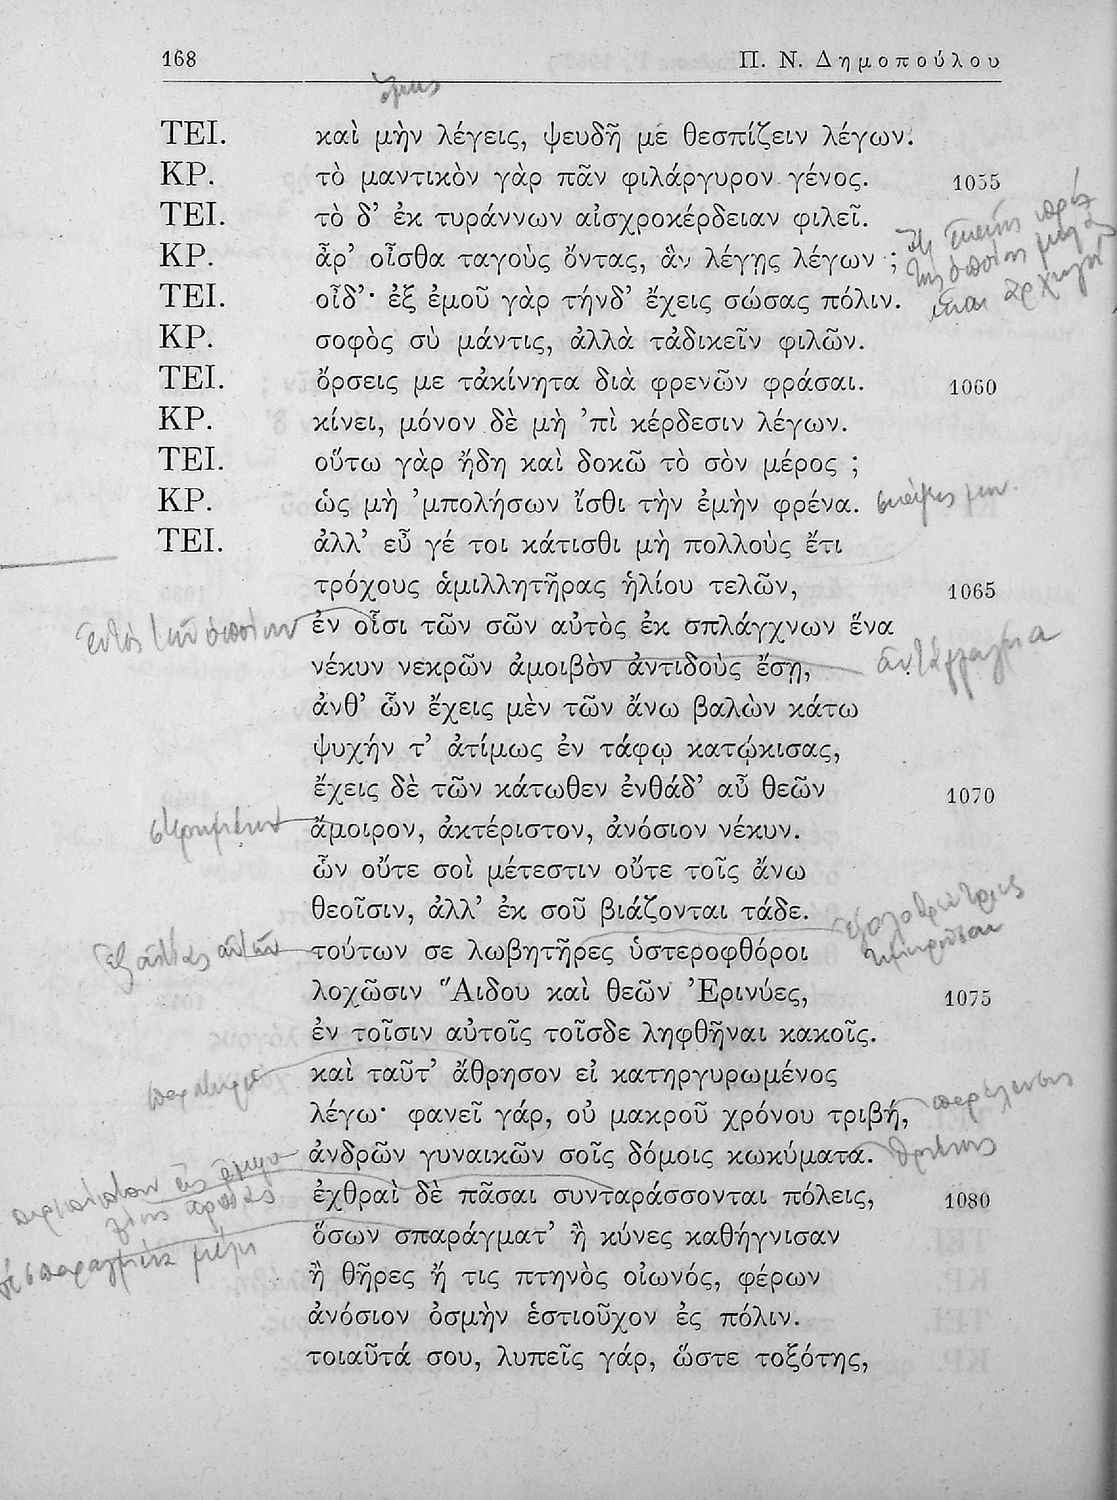 168 Π. Ν. Δημοπούλου
ὅμως
ΤΕΙ. καὶ μὴν λέγεις, ψευδῆ με θεσπίζειν λέγων.
ΚΡ. τὸ μαντικὸν γὰρ πᾶν φιλάργυρον γένος. 1055
ΤΕΙ. τὸ δ' ἐκ τυράννων αἰσχροκέρδειαν φιλεῖ.
ΚΡ. ἆρ' οἶσθα ταγοὺς ὄντας, ἃν λέγῃς λέγων ;
ΤΕΙ. οἶδ'· ἐξ ἐμοῦ γὰρ τήνδ' ἔχεις σώσας πόλιν.
ΚΡ. σοφὸς σὺ μάντις, ἀλλὰ τἀδικεῖν φιλῶν.
ΤΕΙ. ὄρσεις με τἀκίνητα διὰ φρενῶν φράσαι. 1060
ΚΡ. κίνει, μόνον δὲ μὴ 'πὶ κέρδεσιν λέγων.
ΤΕΙ. οὕτω γὰρ ἤδη καὶ δοκῶ τὸ σὸν μέρος ;
ΚΡ. ὡς μὴ 'μπολήσων ἴσθι τὴν ἐμὴν φρένα. σκέψις μου.
ΤΕΙ. ἀλλ' εὖ γέ τοι κάτισθι μὴ πολλοὺς ἔτι
τρόχους ἁμιλλητῆρας ἡλίου τελῶν, 1065
ἐντὸς τῶν ὁποίων ἐν οἷσι τῶν σῶν αὐτὸς ἐκ σπλάγχνων ἕνα
νέκυν νεκρῶν ἀμοιβὸν ἀντιδοὺς ἔσῃ, ἀντάλλαγμα
ἀνθ' ὧν ἔχεις μὲν τῶν ἄνω βαλὼν κάτω
ψυχήν τ' ἀτίμως ἐν τάφῳ κατῴκισας,
ἔχεις δὲ τῶν κάτωθεν ἐνθάδ' αὖ θεῶν 1070
ἄμοιρον, ἀκτέριστον, ἀνόσιον νέκυν.
ὧν οὔτε σοὶ μέτεστιν οὔτε τοῖς ἄνω
θεοῖσιν, ἀλλ' ἐκ σοῦ βιάζονται τάδε.
ἐξ αἰτίας αὐτῶν τούτων σε λωβητῆρες ὑστεροφθόροι
λοχῶσιν Ἅιδου καὶ θεῶν Ἐρινύες, 1075
ἐν τοῖσιν αὐτοῖς τοῖσδε ληφθῆναι κακοῖς.
καὶ ταῦτ' ἄθρησον εἰ κατηργυρωμένος
λέγω· φανεῖ γάρ, οὐ μακροῦ χρόνου τριβή, παρέλευσις
ἀνδρῶν γυναικῶν σοῖς δόμοις κωκύματα. θρήνους
ἐχθραὶ δὲ πᾶσαι συνταράσσονται πόλεις, 1080
ὅσων σπαράγματ' ἢ κύνες καθήγνισαν
ἢ θῆρες ἤ τις πτηνὸς οἰωνός, φέρων
ἀνόσιον ὀσμὴν ἑστιοῦχον ἐς πόλιν.
τοιαῦτά σου, λυπεῖς γάρ, ὥστε τοξότης,